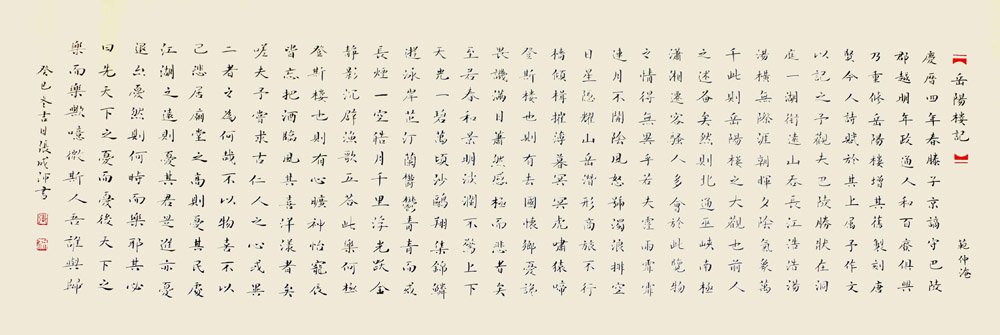 【岳陽樓記】
範仲淹
慶曆四年春滕子京謫守巴陵
郡越明年政通人和百廢俱興
乃重修岳陽樓增其舊製刻唐
賢今人詩賦於其上屬予作文
以記之予觀夫巴陵勝狀在洞
庭一湖銜遠山吞長江浩浩湯
湯橫無際涯朝暉夕陰氣象萬
千此則岳陽樓之大觀也前人
之述备矣然則北通巫峽南極
瀟湘遷客騷人多會於此覽物
之情得無異乎若夫霪雨霏霏
連月不開陰風怒號濁浪排空
日星隱耀山岳潛形商旅不行
檣傾楫摧薄暮冥冥虎嘯猿啼
登斯樓也則有去國懷鄉憂讒
畏譏滿目蕭然感極而悲者矣
至若春和景明波瀾不驚上下
天光一碧萬頃沙鷗翔集錦鱗
游泳岸芷汀蘭鬱鬱青青而或
長煙一空皓月千里浮光躍金
靜影沉璧漁歌互答此樂何極
登斯樓也則有心曠神怡寵辱
皆忘把酒臨風其喜洋洋者矣
嗟夫予嘗求古仁人之心或異
二者之為何哉不以物喜不以
己悲居廟堂之高則憂其民處
江湖之遠則憂其君是進亦憂
退亦憂然則何時而樂耶其必
曰先天下之憂而憂後天下之
樂而樂歟噫微斯人吾誰與歸
癸巳冬吉日張成沛書